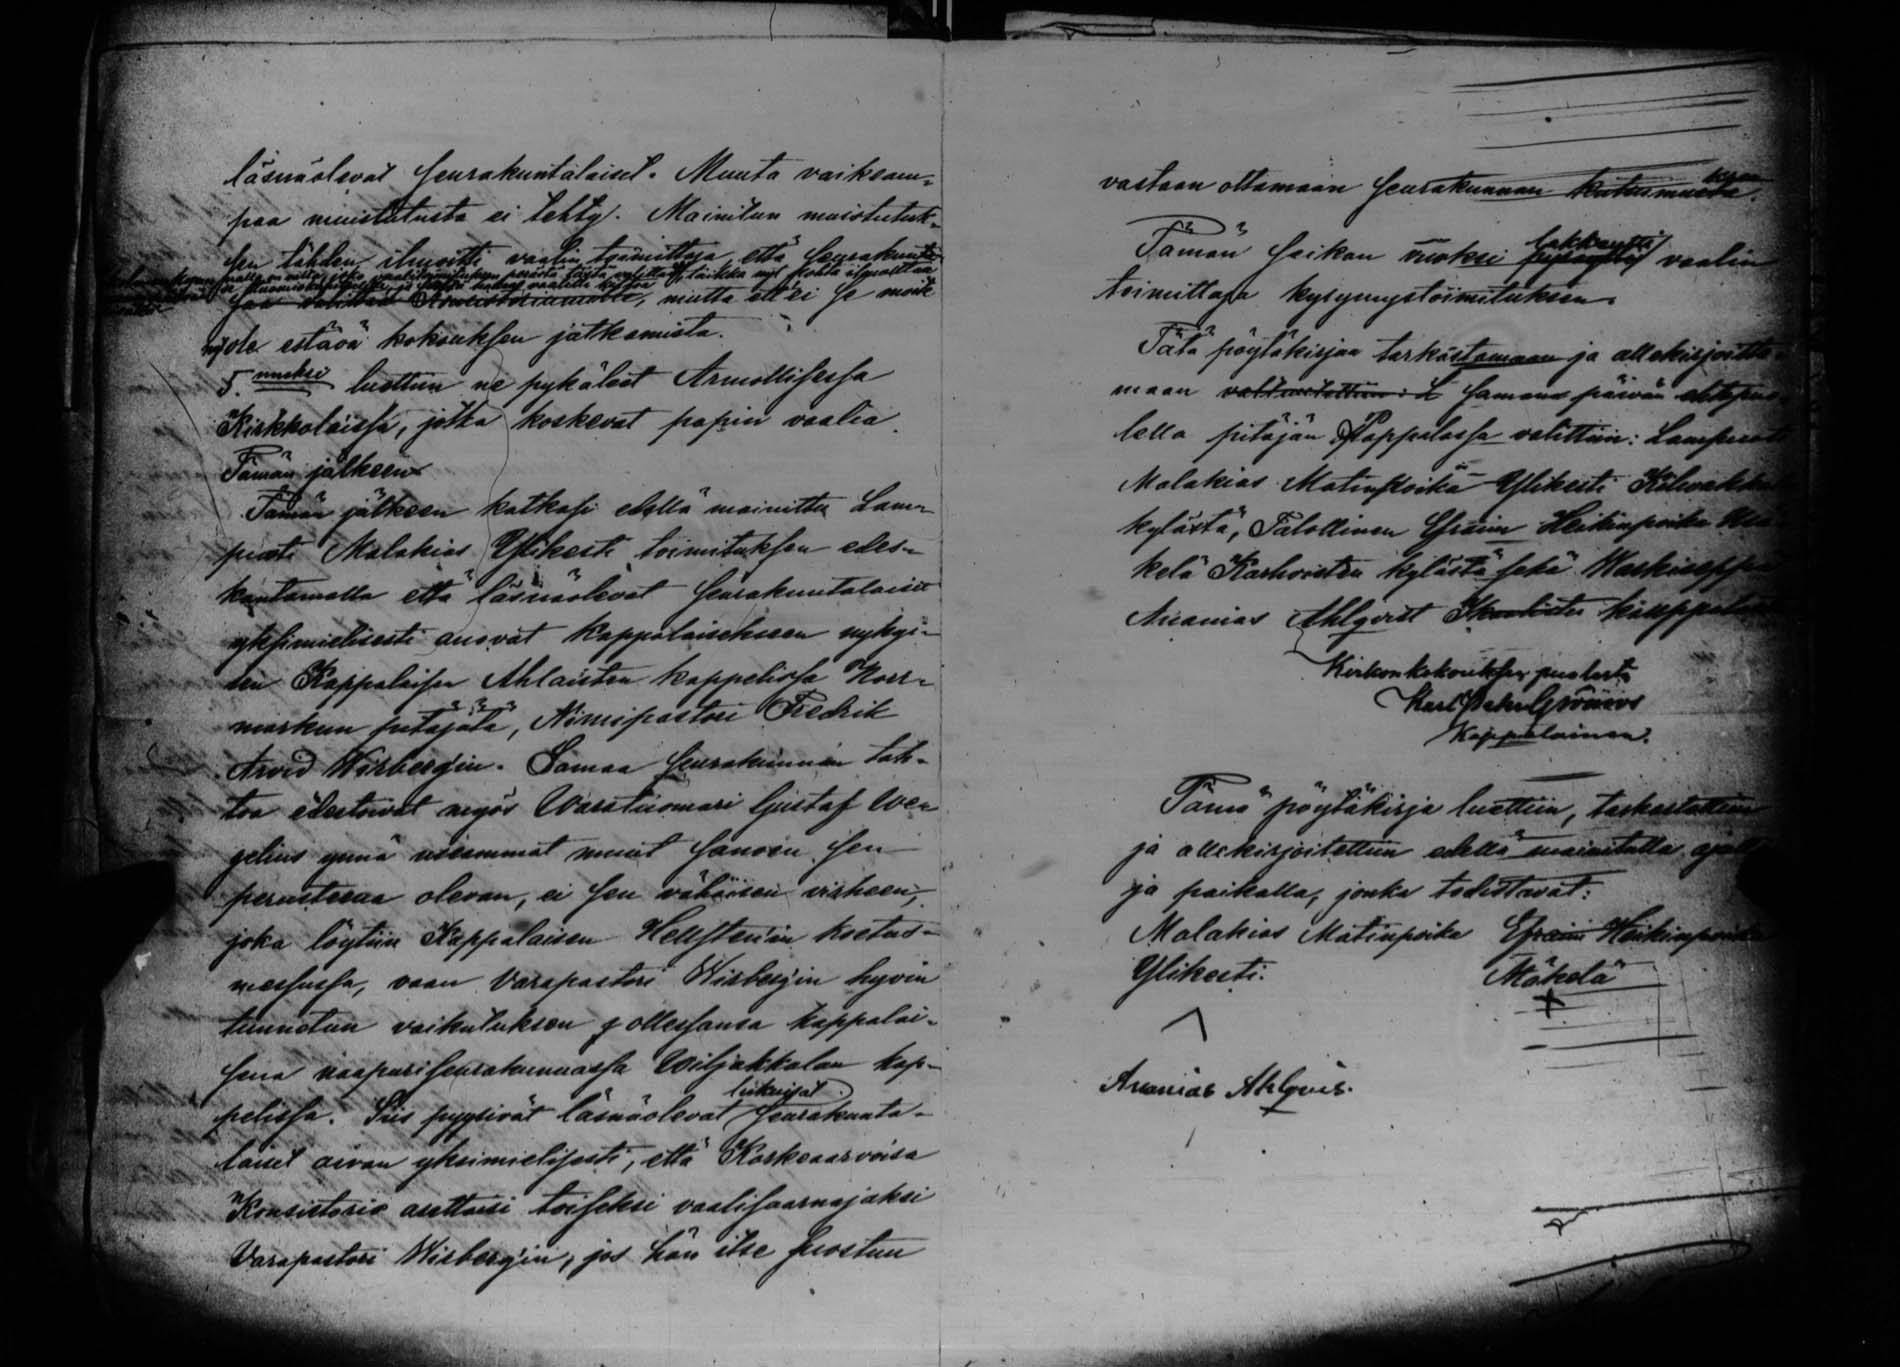 läsnäolevat seurakuntalaiset. Muuta vaikeam-
paa muistutusta ei tehty. Mainitun muistutuk-
sen tähden ilmoitti vaalin toimittaja, että seurakunta
saa valittaa, mutta ett'ei se moite
ole estävä kokouksen jatkamista.
5. nneksi luettiin ne pykälät Armollisessa
Kirkkolaissa, jotka koskevat papin vaalia.
Tämän jälkeen
Tämän jälkeen katkasi edellä mainittu Lam-
puoti Malakias Ylikesti toimituksen edes-
kantamalla että läsnäolevat seurakuntalaiset
yksimielisesti anovat kappalaisekseen nykyi-
sen Kappalaisen Ahlaisten kappelissa Norr-
markun pitäjätä, Nimipastori Fredrik
Arvid Wirbergin. Samaa seurakunnan tah-
toa edestoivat myös Varatuomari Gustaf We-
gelius ynnä useammat muut sanoen sen
perusteena olevan, ei sen vähäisen virheen,
joka löytiin Kappalaisen Hellsten'in koetus-
messussa, vaan Varapastori Wirbergin hyvin
tunnetun vaikutuksen ollessansa kappalai-
sena naapuriseurakunnassa Wiljakkalan kap-
pelissa. Siis pyysivät läsnäolevat lukuisat seurakunta-
laiset aivan yksimielisesti, että Korkeaarvoisa
Konsistorio asettaisi toiseksi vaalisaarnajaksi
Varapastori Wirbergin, jos hän itse suostuu
vastaan ottamaan seurakunnan kutsumusta.
Tämän seikan vuoksi lakkautti vaalin
toimittaja kysymystoimituksen.
Tätä pöytäkirjaa tarkastamaan ja allekirjoitta-
maan samana päivän ehtopuo-
lella pitäjän Pappilassa valittiin: Lampuoti
Malakias Matinpoika Ylikesti Kilvakkalan
kylästä, Talollinen Efraim Heikinpoika Mä-
kelä Karhoisten kylästä sekä
Ananias Ahlqvist
Kirkonkokouksen puolesta
Karl Grönroos
Kappalainen.
Tämä pöytäkirja luettiin, tarkastettiin
ja allekirjoitettiin edellä mainitulla ajalla
ja paikalla, jonka todistavat:
Malakias Matinpoika Efraim Heikinpoika
Ylikesti. Mäkelä
Ananias Ahlqvis.